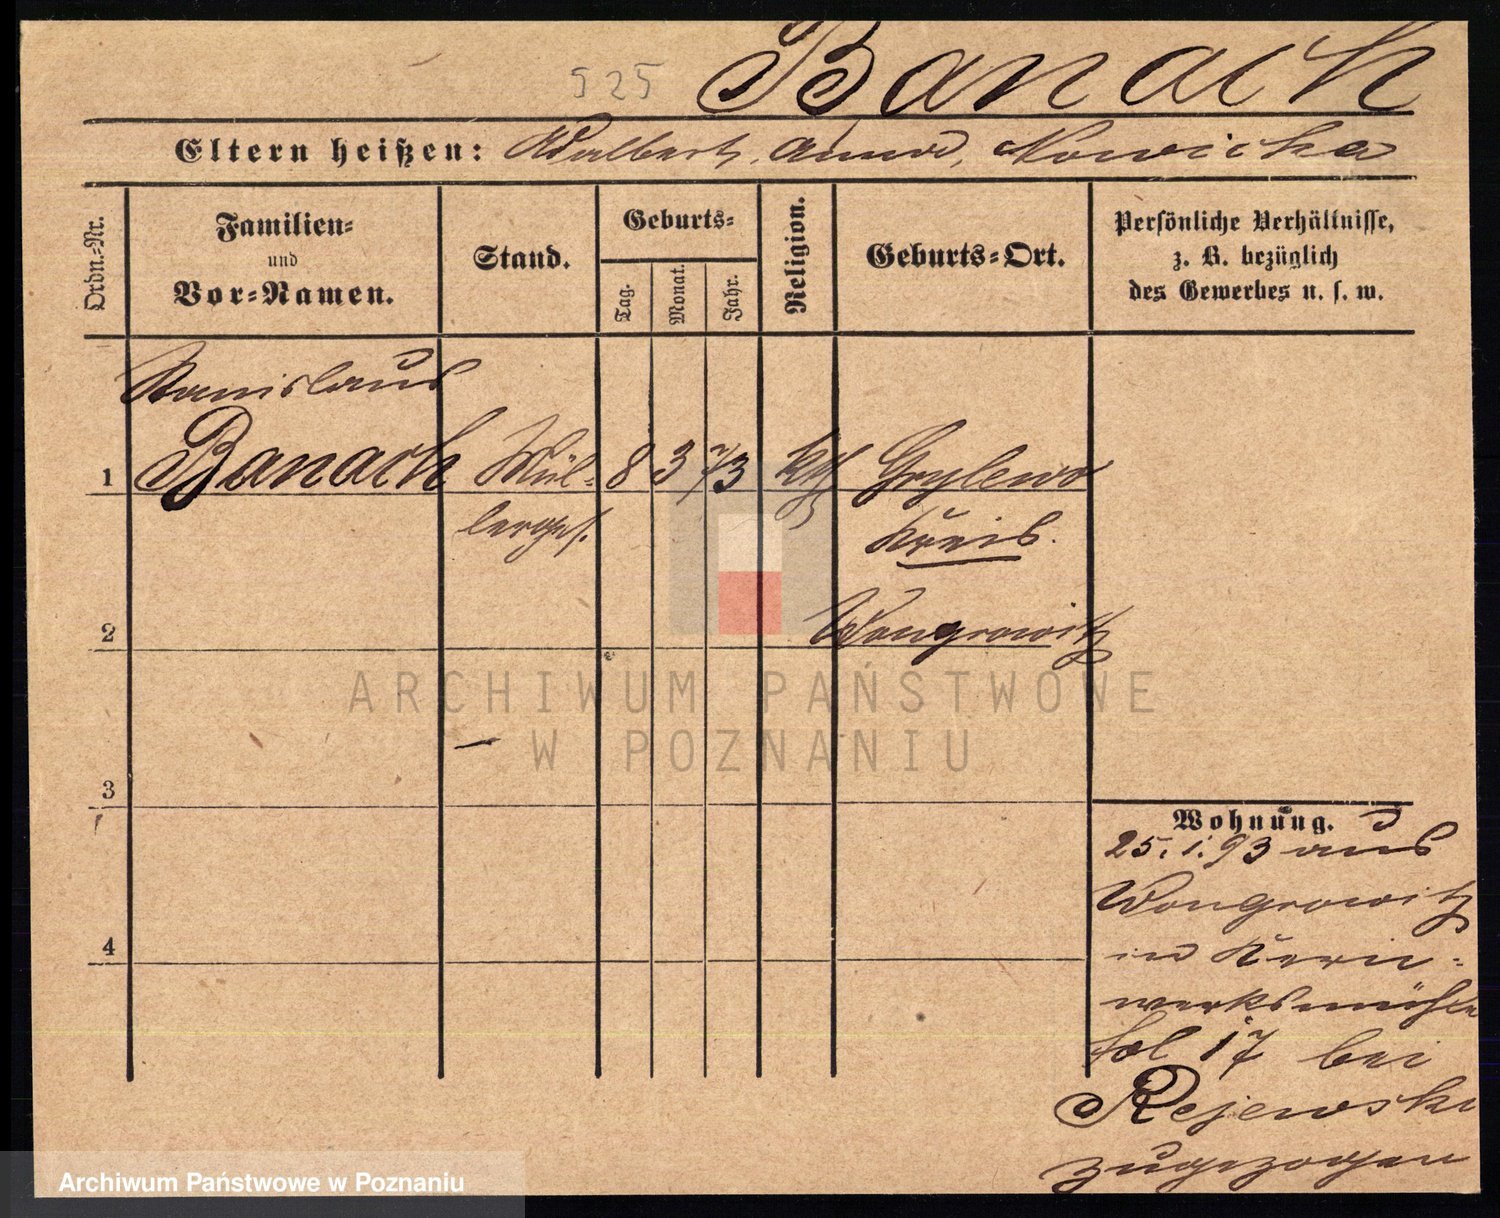 525
Banach
Eltern heißen: Adalbert, Anna, Nowicka
Ordn.-Nr.
Familien-
und
Vor-Namen.
Stand.
Geburts-
Tag.
Monat.
Jahr.
Religion.
Geburts-Ort.
Persönliche Verhältnisse,
z. B. bezüglich
des Gewerbes u. s. w.
Stanislaus
1 Banach Mül- 8 3 73 kth Grylewo
lerges. Kreis
2 Wongrowitz
ARCHIWUM PAŃSTWOWE
W POZNANIU
3
Wohnung.
25. 1. 93 aus
Wongrowitz
4
in Kern-
werksmühle
fol 17 bei
Rejewski
zugezogen
Archiwum Państwowe w Poznaniu